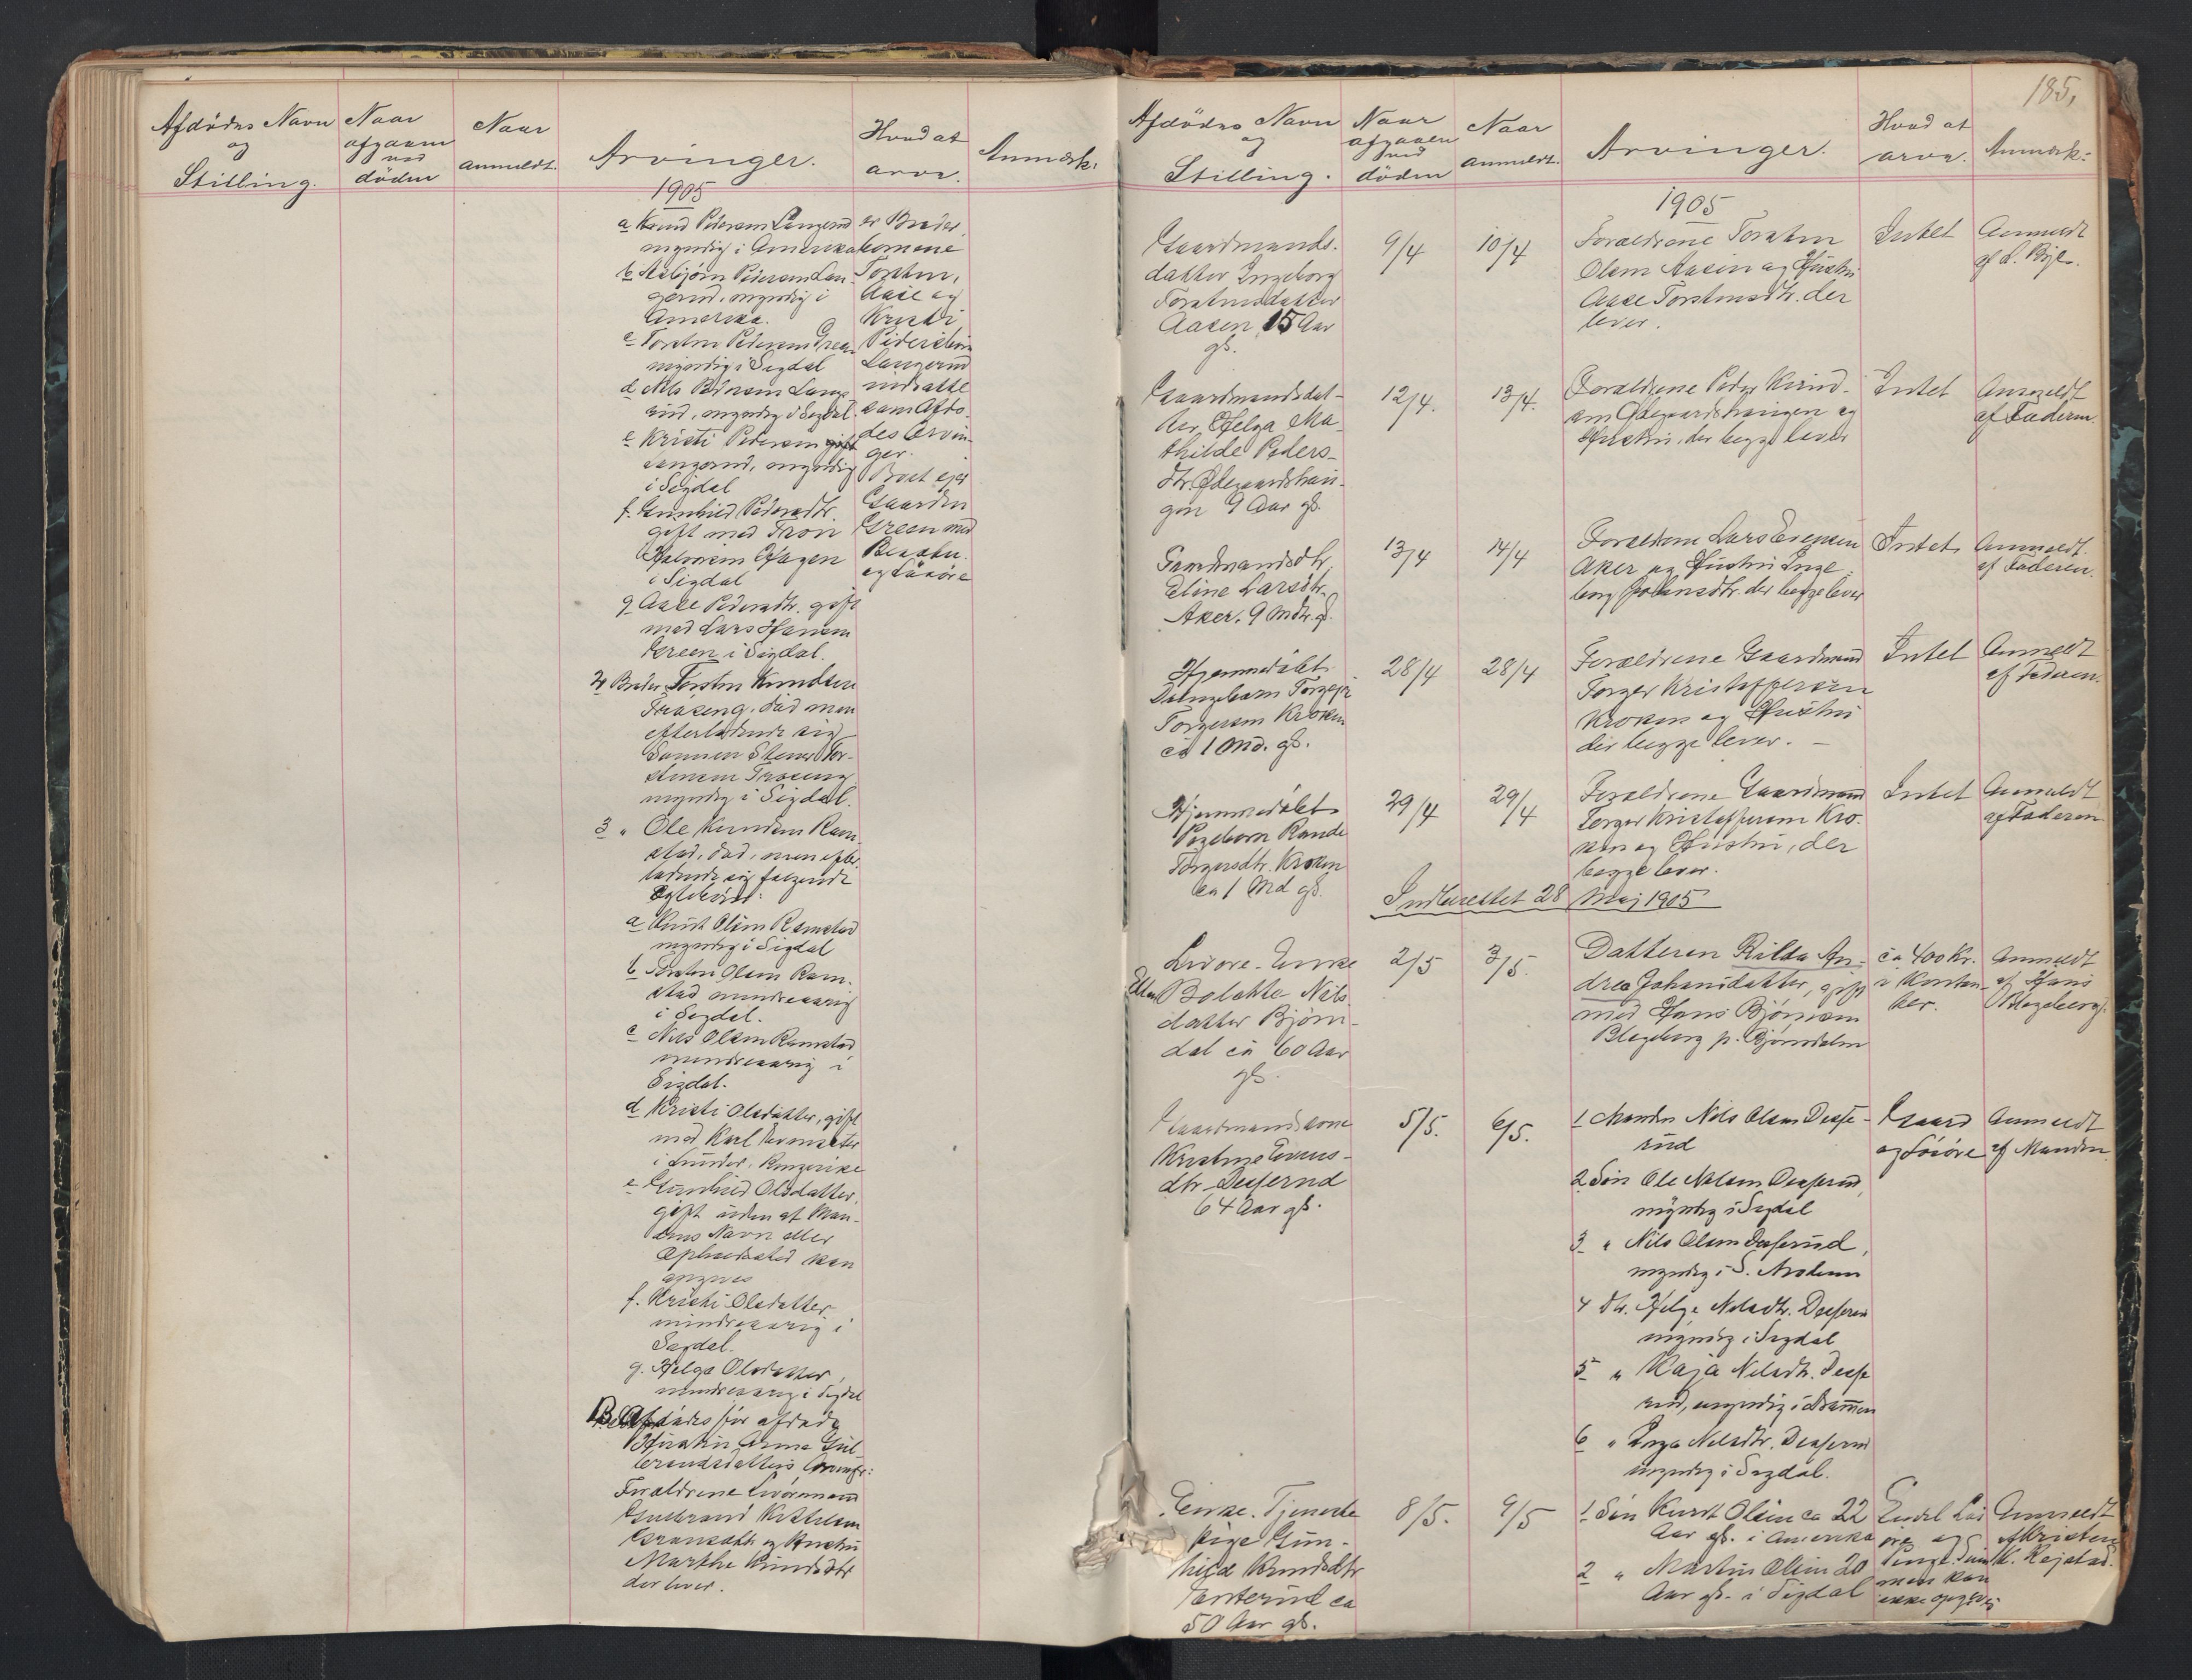 Afdødes Navn
og
Stilling.
Naar
afgaaen
ved
døden
Naar
anmeldt.
Arvinger.
Hvad at
arve.
Anmærk:
1905
a Knud Pedersen Langerud
myndig i Amerika
b Asbjørn Pedersen Lan-
gerud, myndig i
Amerika.
c Torsten Pedersen Green
myndig i Sigdal
d Nils Pedersen Lange
rud, myndig i Sigdal.
e Kristi Pedersen gift
Langerud, myndig
i Sigdal
f. Gunhild Pedersdtr.
gift med Tron
Halvorsen Hagen
i Sigdal
g Aase Pedersdtr. gift
med Lars Hansen
Green i Sigdal.
2 Broder Torsten Knudsen
Fraseng, død men
efterladende sig
Sønnen Stener Tor-
stensen Fraseng
myndig i Sigdal.
3 " Ole Knudsen Ram-
stad, død, men efter-
ladende sig følgende
a Knut Olsen Ramstad
myndig i Sigdal
b Torsten Olsen Ram-
stad mindreaarig
i Sigdal.
c Nils Olsen Ramstad
mindreaarig i
Sigdal.
d Kristi Olsdatter, gift
med Karl
i Lunder, Ringerike
e Gunhild Olsdatter,
gift uden at Man-
dens Navn eller
Opholdssted kan
opgives
f. Kristi Olsdatter
mindreaarig i
Sigdal.
g. Helga Olsdatter,
mindreaarig i Sigdal
B. Afdødes før afdøde
Hustru Anne Gul-
brandsdatters Arvinger:
Forældrene
Gulbrand Kittelsen
og Hustru
Marthe Knudsdtr
der lever.
er Broder
børnene
Torsten,
Aase og
Kristi
Pedersbørn
Langerud
indsatte
som Afdø-
des Arvin-
ger.
Boet ejer
Gaarden
Green med
Besætn.
og Løsøre
185,
Afdødes Navn
og
Stilling.
Naar
afgaaen
ved
døden
Naar
anmeldt.
Arvinger.
Hvad at
arve.
Anmærk:
1905
Gaardmands-
datter Ingeborg
Torstensdatter
Aasen, 15 Aar
gl.
9/4
10/4
Forældrene Torsten
Olsen Aasen og Hustru
Aase Torstensdtr. der
lever.
Intet
Anmeldt
af L.
Gaardmandsdat-
ter, Helga Ma-
thilde Peders-
dtr. Ødegaardshau-
gen 9 Aar gl.
12/4.
13/4.
Forældrene Peder Knud-
sen Ødegaardshaugen og
Hustru, der begge lever
Intet
Anmeldt
af Faderen.
Gaardmandsdtr.
Eline Larsdtr.
Aker. 9 Mdr. gl.
13/4
14/4
Forældrene Lars Evensen
Aker og Hustru Inge-
borg Johnsdtr. der begge lever
Intet
Anmeldt
af Faderen.
Hjemmedøbt
Drengebarn Torgeir
Torgersen Kroken
ca 1 Md. gl.
28/4
28/4
Forældrene Gaardmand
Torger Kristoffersen
Kroken og Hustru
der begge lever. –
Intet
Anmeldt
af Faderen.
Hjemmedøbt
Pigebarn Rande
Torgersdtr. Kroken
ca 1 Md gl.
29/4
29/4
Forældrene Gaardmand
Torger Kristoffersen Kro-
ken og Hustru, der
begge lever.
Intet
Anmeldt
af Faderen
Indberettet 28 Maj 1905
Enke
Bolette Nils
datter Bjørn-
dal ca 60 Aar
gl.
2/5
3/5.
Datteren Rilda An-
drea Johansdatter, gift
med Hans Bjørnsen
Blegeberg p. Bjørndalen
ca 400 Kr.
i Kontan-
ter.
Anmeldt
af Hans
Blegeberg.
Gaardmandskone
Kristine Evens-
dtr Deserud
64 Aar gl.
5/5.
6/5.
1 Manden Nils Olsen Dese-
rud
2 Søn Ole Nilsen Deserud,
myndig i Sigdal
3 " Nils Olsen Deserud,
myndig i S. Modum
4 dtr. Helga Nilsdtr. Deserud
myndig i Sigdal
5 " Kaja Nilsdtr. Dese
rud, myndig i Drammen
6 " Inga Nilsdtr. Deserud
myndig i Sigdal.
Gaard
og Løsøre
Anmeldt
af Manden
Enke. Tjeneste
pige Gun-
hild Knudsdtr
ca
50 Aar gl.
8/5.
9/5
1 Søn Knudt Olsen ca 22
Aar gl. i Amerika
2 " Martin Olsen 20
Aar gl. i Sigdal
Endel Løs
øre og
Penge. Sum
men kan
ikke opgives
Anmeldt
af Kristen
K. Rajstad.